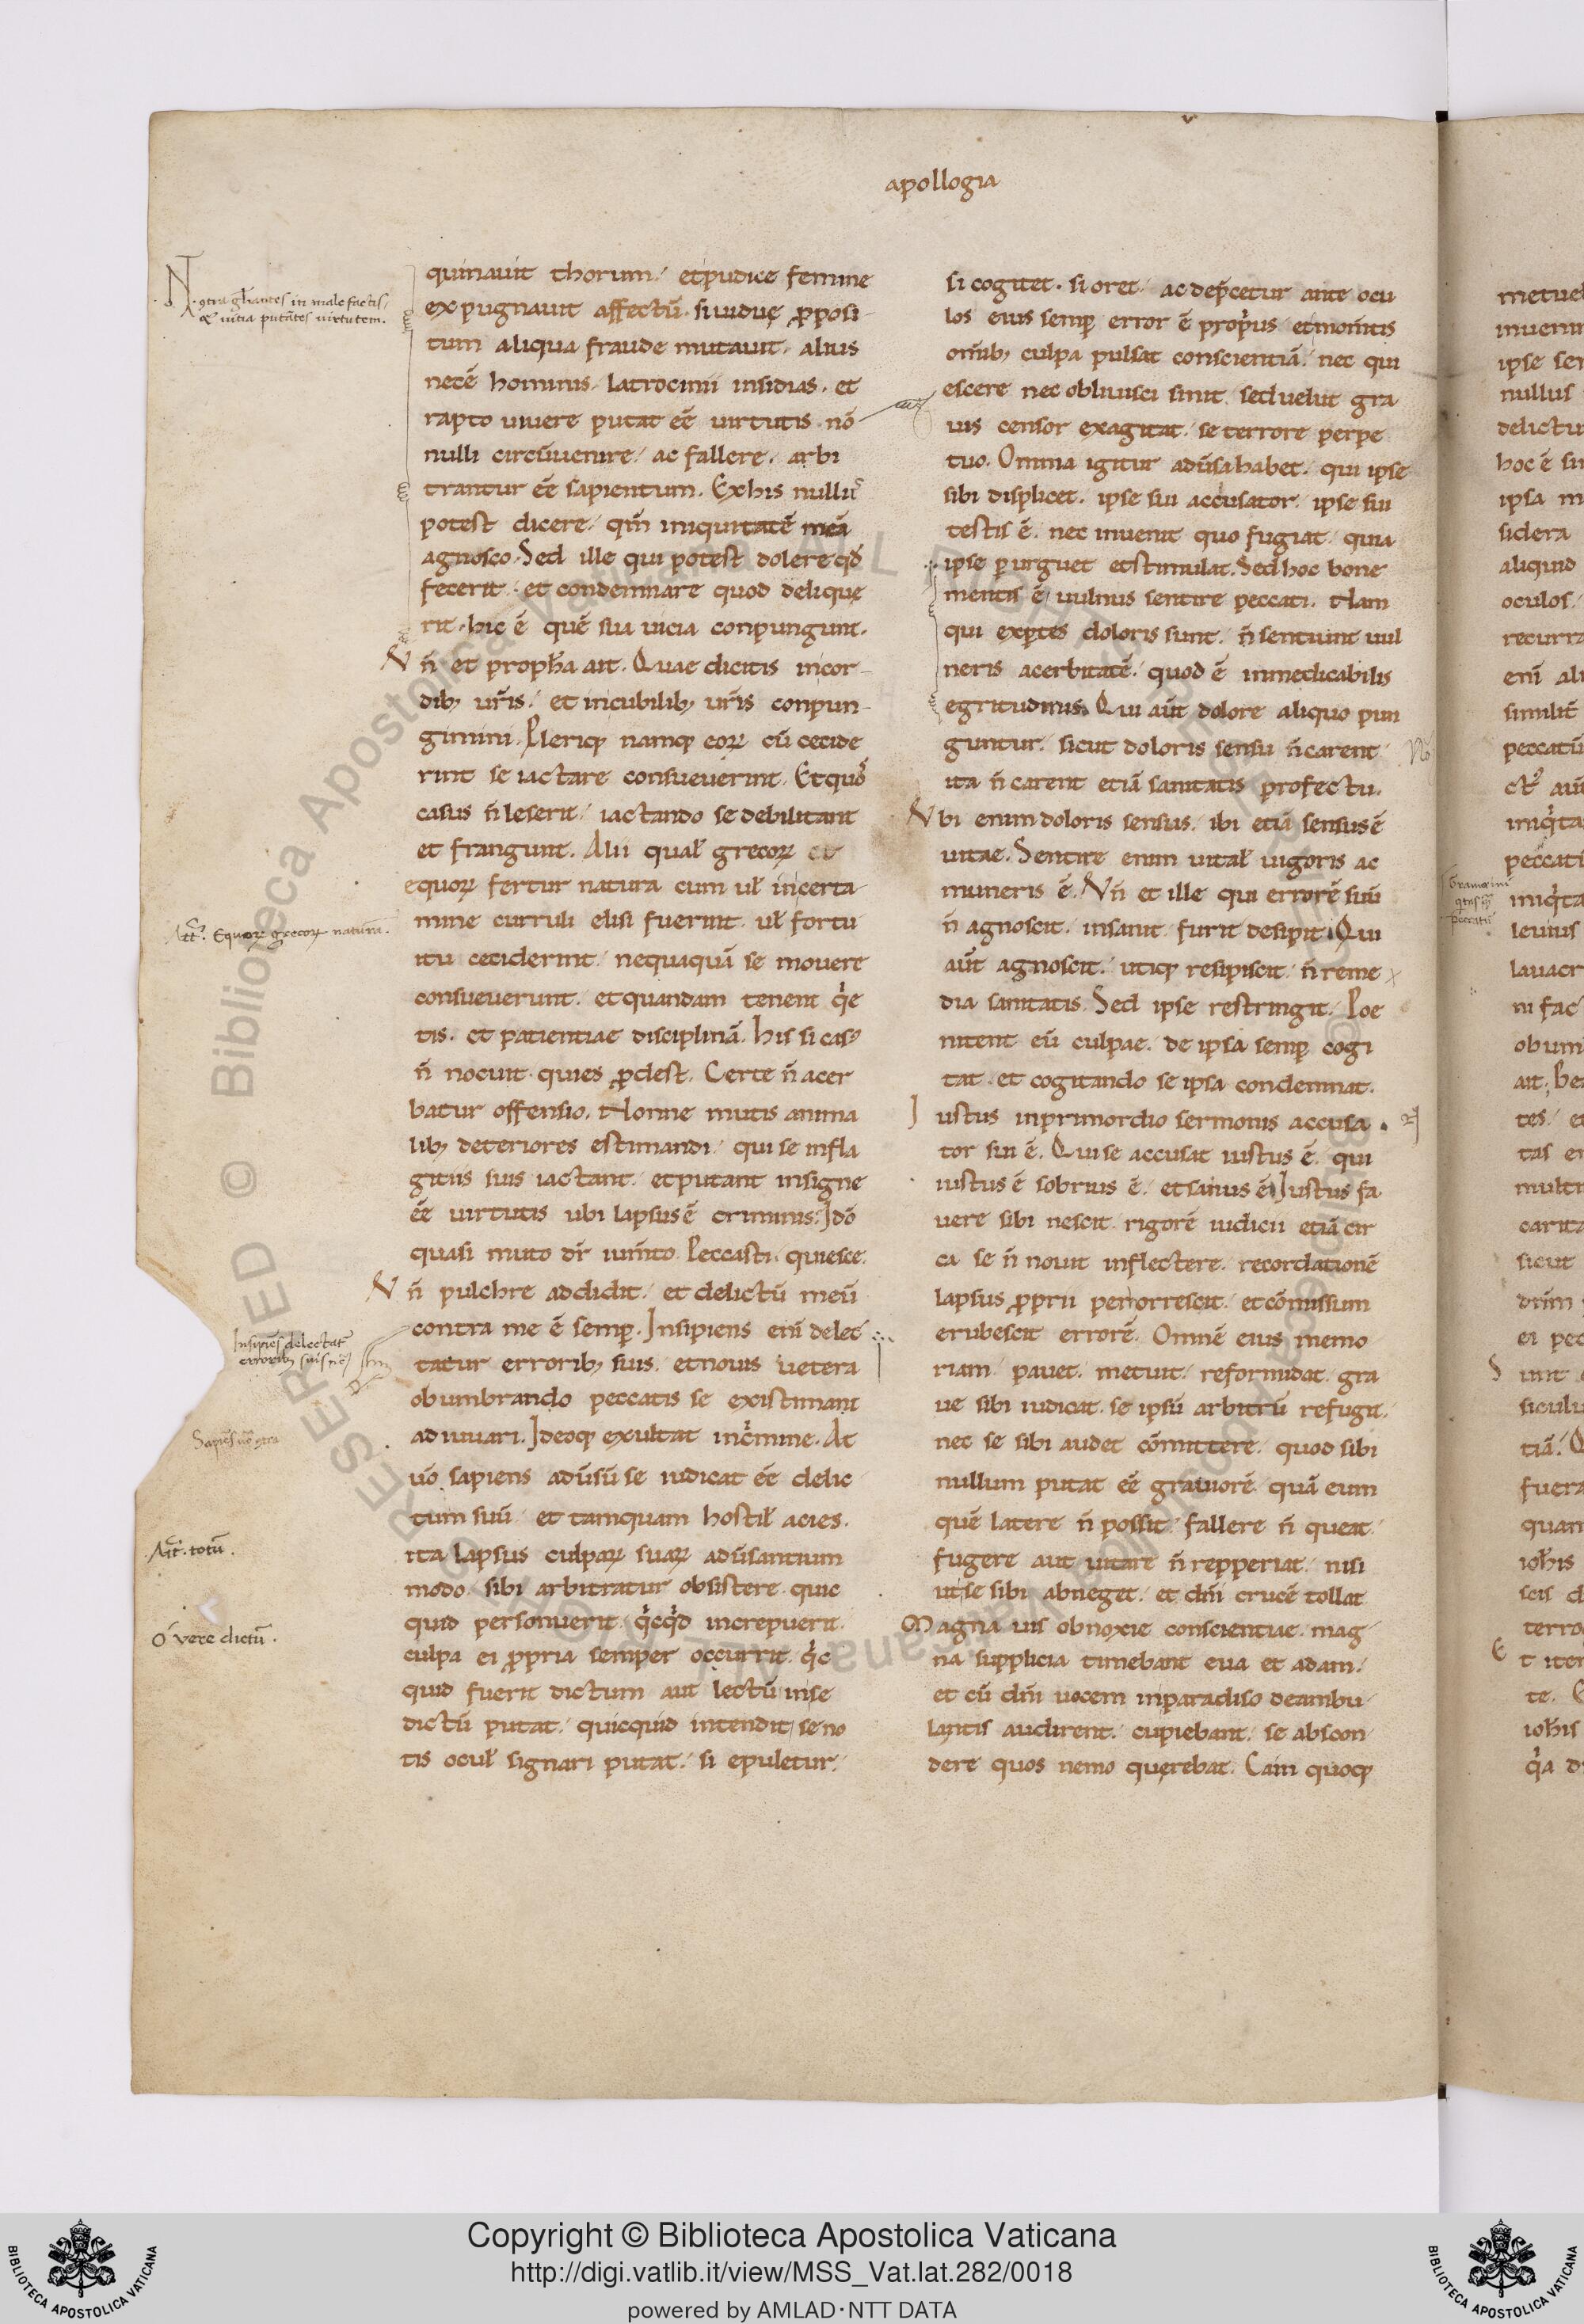 apollogia
quinauit thorum. et pudice femine
expugnauit affectū. si uiduę p̱posi-
tum aliqua fraude mutauit. alius
necē hominis. latrocinii insidias. et
rapto uiuere putat eē̄ uirtutis. nō
nulli circūuenire. ac fallere. arbi
trantur eē̄ sapientum. Ex his nullus
potest dicere. qm̄ iniquitatē meā
agnosco. Sed ille qui potest dolere qd̄
fecerit. et condemnare quod delique
rit. hic ē quē sua uicia conpungunt.
Vn̄ et propha ait. Quae dicitis in cor-
dib; ur̄is. et in cubilib; ur̄is conpun-
gimini. Pleriq; namq; eoꝝ cū cecide
rint se iactare consueuerint. Et quos
casus n̄ leserit. iactando se debilitant
et frangunt. Alii qual̄ grecoꝝ
equoꝝ fertur natura cum ul̄ in certa
mine curruli elisi fuerint. ul̄ fortu
itu ceciderint. nequaquā se mouere
consueuerunt. et quandam tenent qͥe
tis. et patientiae disciplinā. his si casꝰ
n̄ nocuit. quies p̱dest. Certe n̄ acer
batur offensio. Nonne mutis anima
lib; deteriores estimandi. qui se in fla
gitiis suis iactant. et putant insigne
eē̄ uirtutis ubi lapsus ē criminis. Idō
quasi muto dr̄ iumto. Peccasti. quiesce.
Vn̄ pulchre addidit. et delictū meū
contra me ē semp̱. Insipiens eni delec
tatur errorib; suis. et nouis uetera
obumbrando peccatis se existimant
adiuuari. Ideoq; exultat in cͥmine. At
uō sapiens aduͥsū se iudicat eē̄ delic
tum suū. et tamquam hostil̄ acies.
ita lapsus culpaꝝ suaꝝ aduͥsantium
modo sibi arbitratur obsistere. quic
quid personuerit. qͥcqͥd increpuerit.
culpa ei p̱pria semper occurrit. qͥc
quid fuerit dictum aut lectū in se
dictū putat. quicquid intendit se no
tis ocul̄ signari putat. si epuletur.
si cogitet. si oret. ac dep̄cetur ante ocu
los eius semp̱ error ē propͥus. et momtis
om̄ib; culpa pulsat conscientiā. nec qui
escere nec obliuisci sinit. sed uelut gra
uis censor exagitat. se terrore perpe
tuo. Omnia igitur aduͥsa habet. qui ipse
sibi displicet. ipse sui accusator. ipse sui
testis ē. nec inuenit quo fugiat. quia
ipse p̱urguet et stimulat. Sed hoc bone
mentis ē uulnus sentire peccati. Nam
qui exp̱tes doloris sunt. n̄ sentiunt uul
neris acerbitatē. quod ē inmedicabilis
egritudinis. Qui aūt dolore aliquo pun
guntur. sicut doloris sensu n̄ carent
ita n̄ carent etiā sanitatis profectu.
Vbi enim doloris sensus. ibi etiā sensus ē
uitae. Sentire enim uital̄ uigoris ac
muneris ē. Vn̄ et ille qui errorē suū
n̄ agnoscit. insanit. furit desipit. Qui
aūt agnoscit. utiq; resipiscit. n̄ reme
dia sanitatis. Sed ipse restringit. Poe
nitent eū culpae. de ipsa semp̱ cogi
tat. et cogitando se ipsa condemnat.
Iustus in primordio sermonis accusa
tor sui ē. Qui se accusat iustus ē. qui
iustus ē sobrius ē. et sanus ē. Iustus fa
uere sibi nescit. rigorē iudicii etiā cir
ca se n̄ nouit inflectere. recordationē
lapsus p̱prii perrorrescit. et cōmissum
erubescit errorē. Omnē eius memo
riam pauet. metuit. reformidat. gra
ue sibi iudicat. se ipsū arbitrū refugit.
nec se sibi audet cōmittere. quod sibi
nullum putat eē̄ grauiorē. quā eum
quē latere n̄ possit. fallere n̄ queat.
fugere aut uitare n̄ repperiat. nisi
ut se sibi abneget. et dn̄i crucē tollat.
Magna uis obnoxie conscientiae. mag
na supplicia timebant eua et adam.
et cū dn̄i uocem in paradiso deambu
lantis audirent. cupiebant se abscon
dere quos nemo querebat. Cain quoq;
9tra gl̄iantes in malefactis
& uitia putātes uirtutem.
Equoꝝ grecoꝝ natura.
Insipiēs delectat̄
errorib; suis
totū.
O uere dictū.
Copyright © Biblioteca Apostolica Vaticana
http://digi.vatlib.it/view/MSS_Vat.lat.282/0018
powered by AMLAD·NTT DATA
BIBLIOTECA APOSTOLICA VATICANA
BIBLIOTECA APOSTOLICA VATICANA